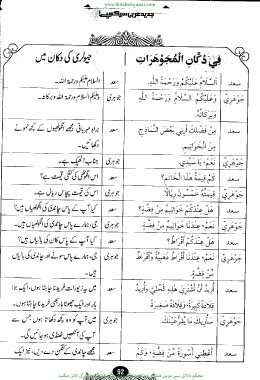 www.KitaboSunnat.com
جدید عربی سیکھیے
فِي دُكَّانِ الْمُجَوْهَرَاتِ
جیولری کی دکان میں
سعد
اَلسَّلَامُ عَلَيْكُمْ وَرَحْمَةُ اللّٰهِ
سعد
السلام علیکم ورحمۃ اللہ۔
جَوْهَرِيّ
وَعَلَيْكُمُ السَّلَامُ وَرَحْمَةُ اللّٰهِ
وَبَرَكَاتُهُ
جوہری
وعلیکم السلام ورحمۃ اللہ وبرکاتہ۔
سعد
مِنْ فَضْلِكَ أَرِنِي بَعْضَ النَّمَاذِجِ
مِنَ الْخَوَاتِيمِ
سعد
براہ مہربانی مجھے انگوٹھیوں کے کچھ نمونے
دکھائیں۔
جَوْهَرِيّ
نَعَمْ، يَا سَيِّدِي
جوہری
جناب! ٹھیک ہے۔
سعد
كَمْ قِيمَةُ هٰذَا الْخَاتَمِ؟
سعد
اس انگوٹھی کی کتنی قیمت ہے؟
جَوْهَرِيّ
قِيمَتُهُ خَمْسُونَ رِيَالًا
جوہری
اس کی قیمت پچاس ریال ہے۔
سعد
هَلْ عِنْدَكُمْ خَوَاتِيمُ مِنْ فِضَّةٍ؟
سعد
کیا آپ کے پاس چاندی کی انگوٹھیاں ہیں؟
جَوْهَرِيّ
نَعَمْ، عِنْدَنَا خَوَاتِيمُ مِنْ فِضَّةٍ
جوہری
جی، ہمارے پاس چاندی کی انگوٹھیاں ہیں۔
سعد
هَلْ عِنْدَكُمْ أَقْرَاطٌ؟
سعد
کیا آپ کے پاس کان کی بالیاں ہیں؟
جَوْهَرِيّ
نَعَمْ، عِنْدَنَا أَقْرَاطٌ ذَهَبِيَّةٌ وَأَقْرَاطٌ
مِنْ فِضَّةٍ
جوہری
جی، ہمارے پاس سونے اور چاندی کی بالیاں
ہیں۔
سعد
أُرِيدُ أَنْ أَشْتَرِيَ هٰذِهِ الْحُلِيَّ وَأُرِيدُ
قِلَادَةً كَبِيرَةً وَقِلَادَةً صَغِيرَةً
سعد
میں یہ زیورات خریدنا چاہتا ہوں، ایک بڑا
ہار اور ایک چھوٹا ہار بھی خریدنا چاہتا ہوں۔
جَوْهَرِيّ
سَأُرِيكَ مَا يُقِرُّ عَيْنَكَ
جوہری
میں آپ کو وہ کچھ دکھاتا ہوں جس سے
آپ کی آنکھیں ٹھنڈی ہو جائیں گی۔
سعد
أَعْطِنِي أَسْوِرَةً مِنْ فِضَّةٍ، وَكَمْ
سعد
مجھے چاندی کے کنگن دے دیں، نیز ایک
92